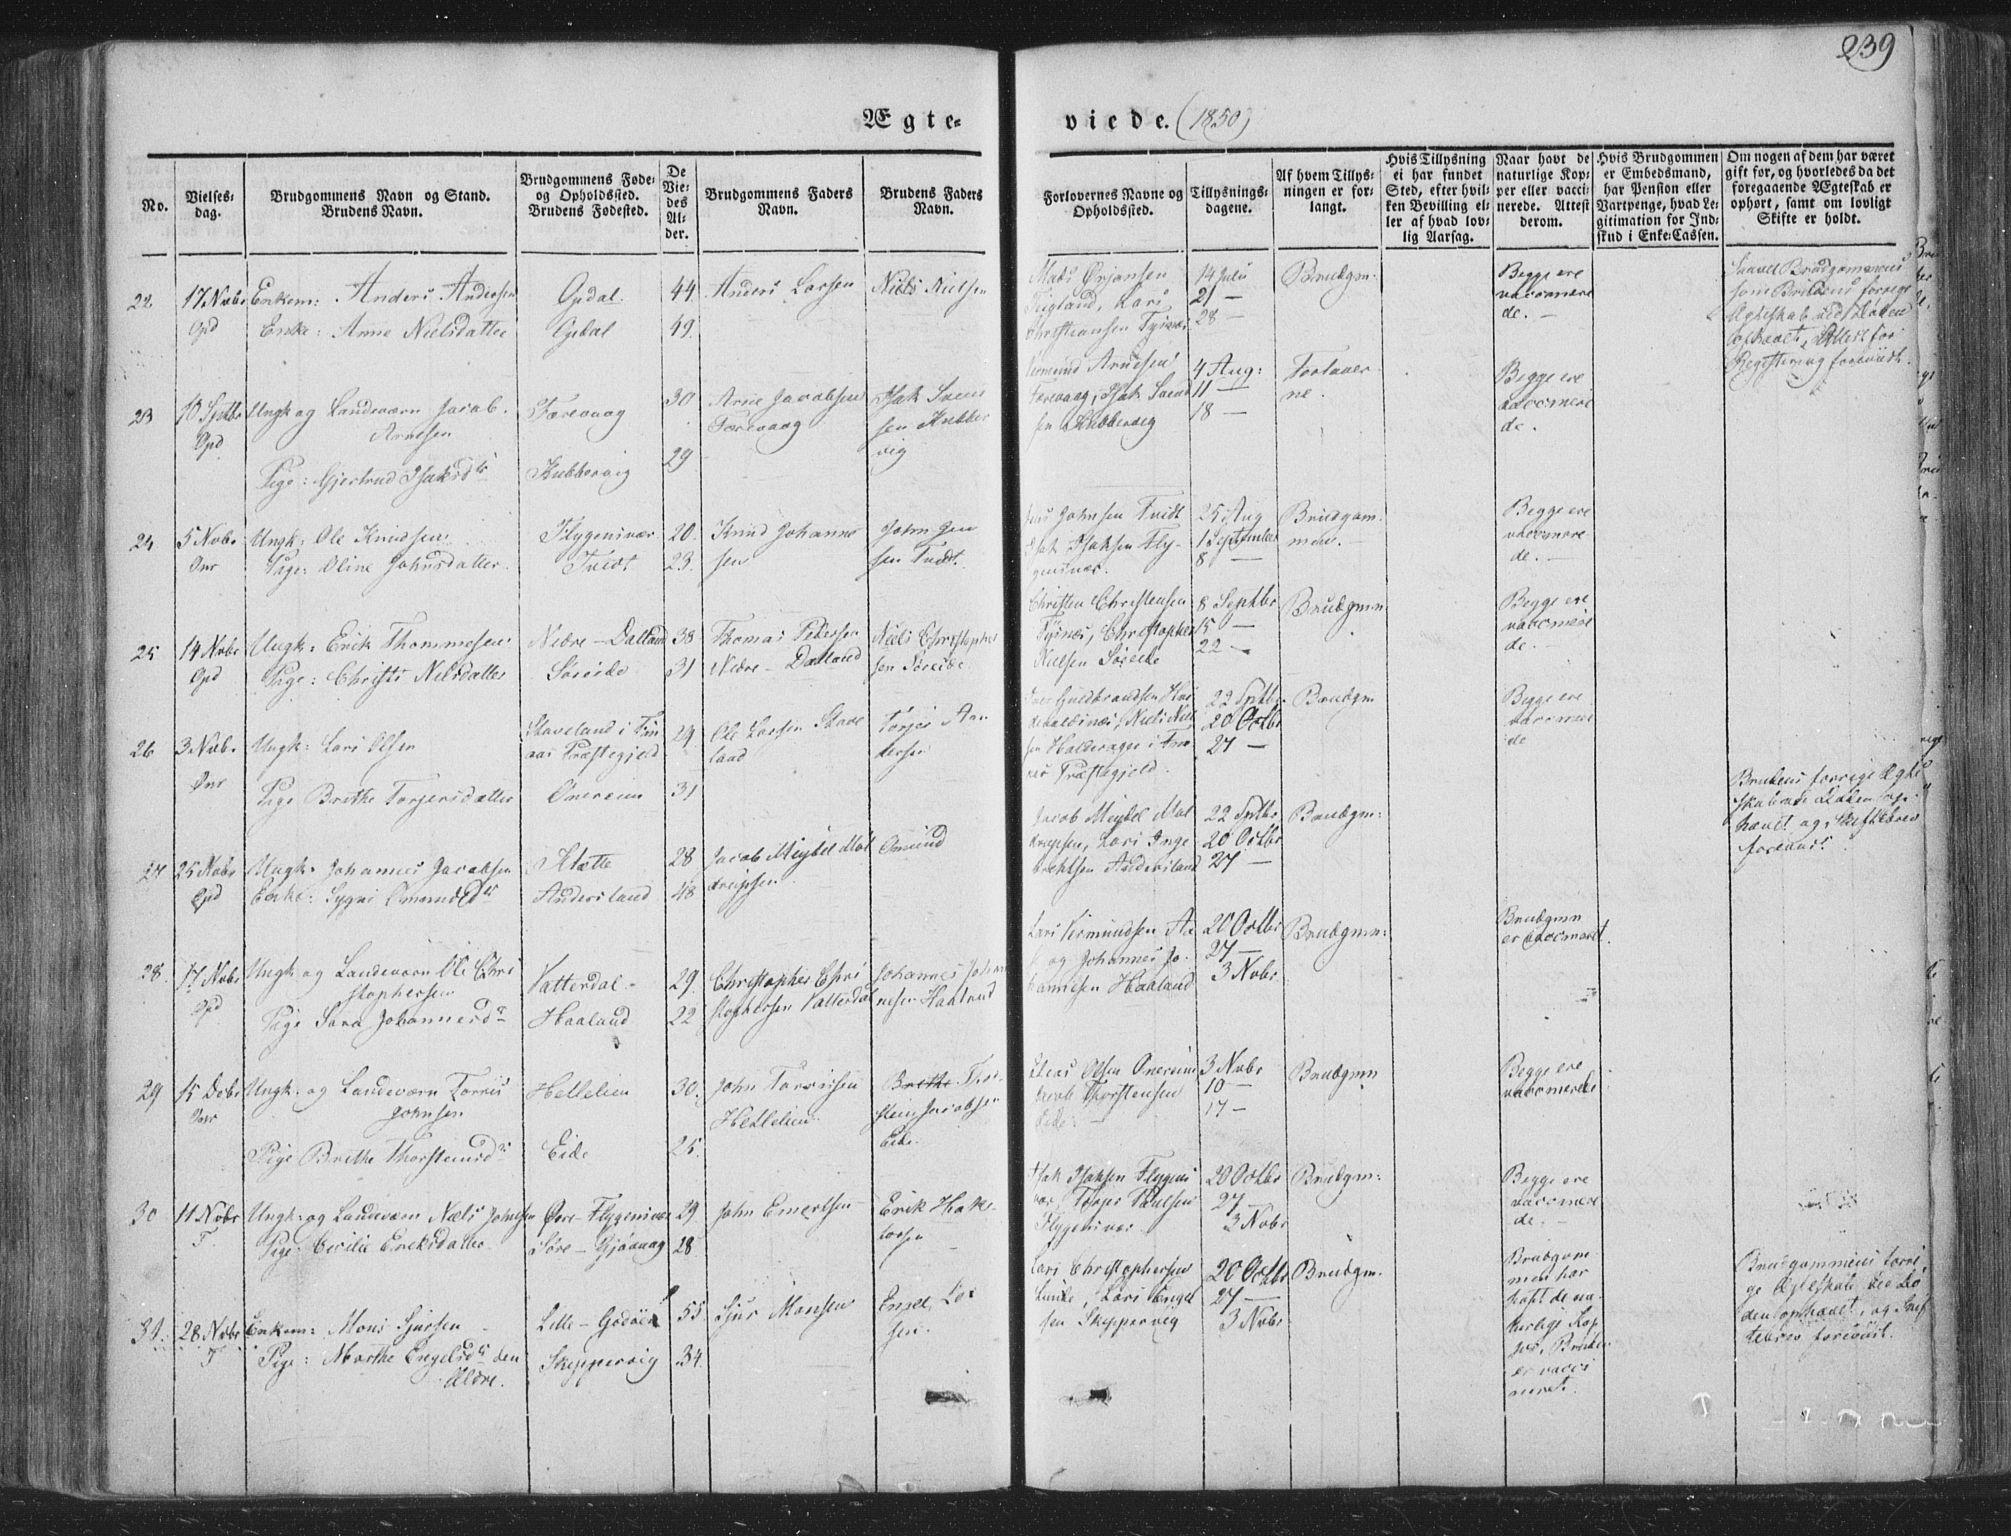 239
Ægte-
viede. (1850)
No.
Vielses-
dag.
Brudgommens Navn og Stand.
Brudens Navn.
Brudgommens Føde-
og Opholdssted.
Brudens Fødested.
De
Vie-
des
Al-
der.
Brudgommens Faders
Navn.
Brudens Faders
Navn.
Forlovernes Navne og
Opholdssted.
Tillysnings-
dagene.
Af hvem Tillys-
ningen er for-
langt.
Hvis Tillysning
ei har fundet
Sted, efter hvil-
ken Bevilling el-
ler af hvad lov-
lig Aarsag.
Naar havt de
naturlige Kop-
per eller vacci-
nerede. Attest
derom.
Hvis Brudgommen
er Embedsmand,
har Pension eller
Vartpenge, hvad Le-
gitimation for Ind-
skud i Enke-Cassen.
Om nogen af dem har været
gift før, og hvorledes da det
foregaaende Ægteskab er
ophørt, samt om lovligt
Skifte er holdt.
22
17 Nvbr
Opd
Enkem: Anders Andersen
Enke: Anne Nielsdatter
Opdal.
Opdal
44
49
Anders Larsen
Niels Nielsen
Mads Ørjansen
Lars
Christiansen Tysnæs
14 Julii
21 —
28 —
Brudgm.
Begge ere
vaccinere
de. —
Saavel Brudgommens
som Brudens forrige
Ægteskab ved Døden
ophævet, Attest for
Registrering foreviist.
23
Opd
Ungk og Landeværn Jacob
Arnesen
Pige: Gjertrud Isaksdr
Færevaag
Kubbervig
30
29
Arne Jacobsen
Færevaag
Isak Svend
sen Kubber
vig
Arnesen
Færevaag, Isak Svend
sen Kubbervig
4 Aug:
11 —
18 —
Forlover
ne.
Begge ere
vaccinere
de.
24
5 Nvbr
Onr
Ungk: Ole Knudsen
Pige: Oline Johnsdatter
Flygensvær
Tvedt
20.
23.
Knud Johanne
sen
John Jen
sen Tvedt.
Jens Johnsen Tvedt
Isak Isaksen Fly-
gensvær.
25 Aug
1 September
8 —
Brudgom-
men. —
Begge ere
vaccinere
de. —
25
14 Nvbr
Opd
Ungk: Erik Thommesen
Pige: Christi Nilsdatter
Nedre-Dalland
Søreide
38
31
Thomas Pedersen
Nedre-Dalland
Niels Christopher
sen Søreide
Christen Christensen
Tysnæs, Christopher
Nielsen Søreide
8 Septbr
15 —
22 —
Brudgmn
Begge ere
vaccinere
de. —
26
3 Nvbr
Onr
Ungk: Lars Olsen
Pige Brithe Torjersdatter
Skaveland i Fin
aas Præstegjeld
Onereim
29
31
Ole Larsen Skave
land
Torjer An
dersen
Niels Niel
sen Halleragge i Fin
aas Præstegjeld.
22 Sptbr.
20 Octbr
27 —
Brudgm
Begge ere
vaccinere
de
27
25 Nvbr
Opd
Ungk. Johannes Jacobsen
Enke: Sygni Omundsdr
Flatte
Andersland
28
48
Jacob Meydel Mol
dreipsen
Omund
Jacob Meydel Mol
dreipsen, Lars Inge
brechtsen Andersland
22 Sptbr
20 Octbr
27 —
Brudgm:
Brudens forrige Ægte
skab ved Døden op-
hævet og Skiftebrev
foreviist.
28.
17 Nvbr
Opd
Ungk og Landeværn Ole Chri
stophersen
Pige Sara Johannesdr
Vatterdal
Haaland
29.
22
Christopher Chri
stophersen Vatterdal
Johannes Johan
nesen Haaland
Lars Vermundsen
og Johannes Jo-
hannesen Haaland
20 Octbr
27 —
3 Nvbr
Brudgmn:
Brudgmn
er vaccineret.
29
15 Decbr
Onr
Ungk. og Landeværn Torris
Johnsen
Pige Brithe Thorsteinsdr
Hellelien
Eide
30.
25.
John Torrisen
Hellelien
Thor-
stein Jacobsen
Eide.
Olsen Onereim
Jacob Thorstensen
Eide.
3 Nvbr
10 —
17 —
Brudgmn
Begge ere
vaccinerede
30
11 Nvbr
T
Ungk: og Landeværn Niels Johnsen
Pige: Cecilie Eriksdatter
Øvre-Flygensvær
Søre-Gjøvaag
29
28
John Emertsen
Erik Haak-
torsen
Isak Isaksen Flygens
vær, Torjer Paulsen
Flygensvær
20 Octbr
27 —
3 Nvbr
Brudgm:
Begge ere
vaccinere
de. —
31.
28 Nvbr
T
Enkem: Mons Sjursen
Pige: Marthe Engelsdr den
Ældre.
Lille-Godøen
Skeppervig
55.
34.
Sjur Monsen
Engel Lar
sen.
Lars Christophersen
Lunde, Lars Engel
sen Skeppervig
20 Octbr
27 —
3 Nvbr
Brudgm.
Brudgom
men har
havt de na-
turlige Kop
per, Bruden
er vacci
neret.
Brudgommens forri-
ge Ægteskab ved Dø
den ophævet, og Skif
tebrev foreviist.